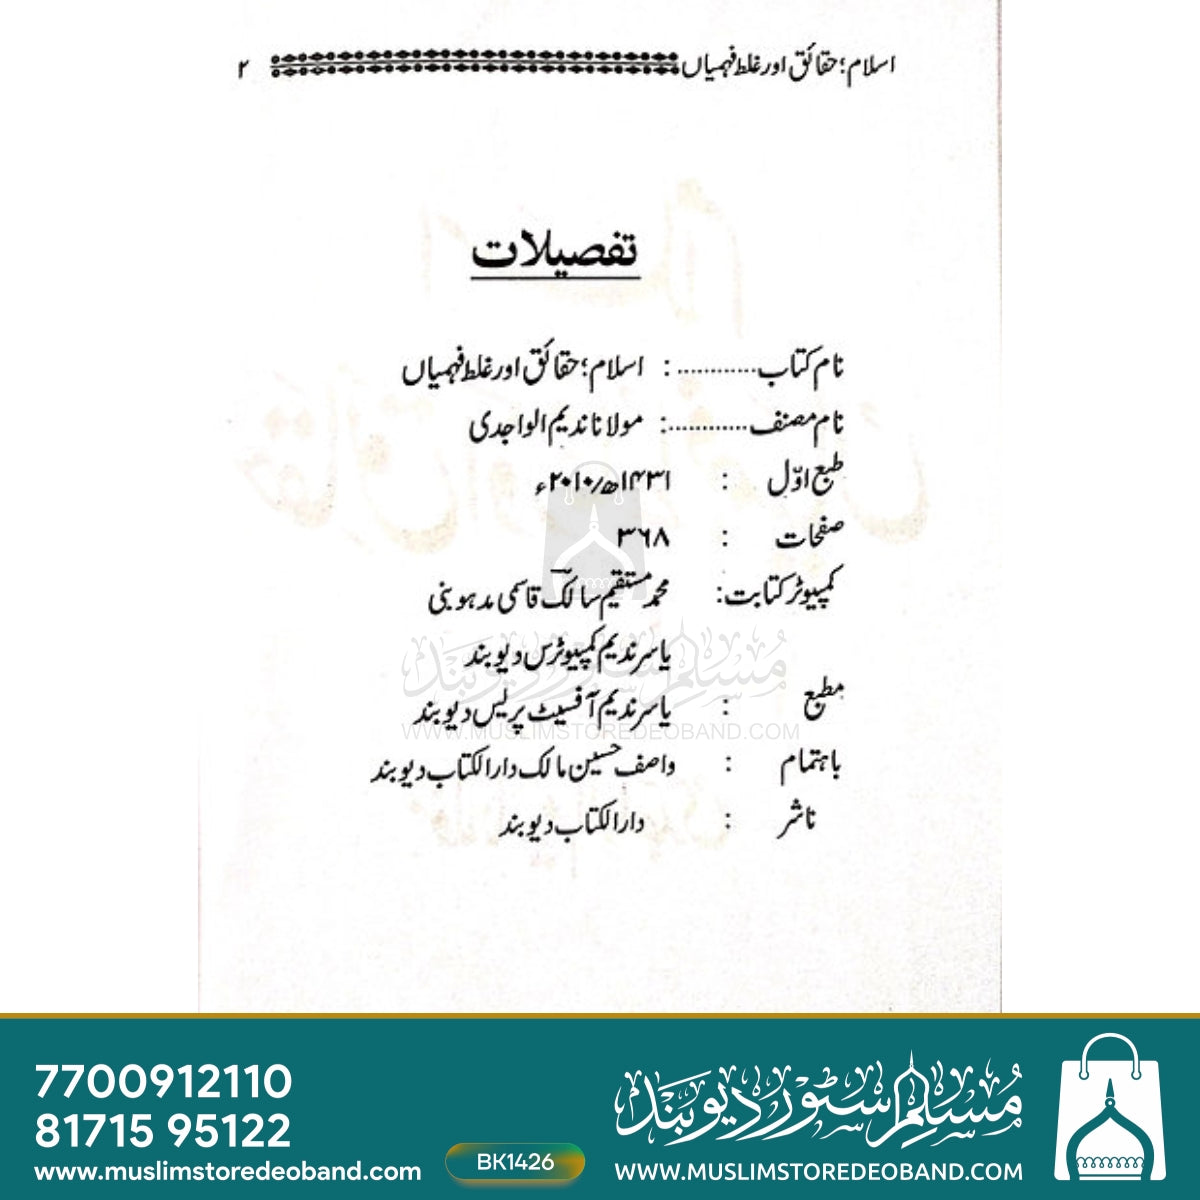 اسلام؛ حقائق اور غلط فہمیاں ۲
تفصیلات
نام کتاب ............ : اسلام؛ حقائق اور غلط فہمیاں
نام مصنف ............ : مولانا ندیم الواجدی
طبع اوّل : ۱۴۳۱ھ/۲۰۱۰ء
صفحات : ۳۶۸
کمپیوٹر کتابت : محمد مستقیم سالک قاسمی مدہوبنی
یاسر ندیم کمپیوٹرس دیوبند
مطبع : یاسر ندیم آفسیٹ پریس دیوبند
باہتمام : واصف حسین مالک دارالکتاب دیوبند
ناشر : دارالکتاب دیوبند
مسلم سٹور دیوبند
WWW.MUSLIMSTOREDEOBAND.COM
7700912110
81715 95122
www.muslimstoredeoband.com
BK1426
مسلم سٹور دیوبند
WWW.MUSLIMSTOREDEOBAND.COM